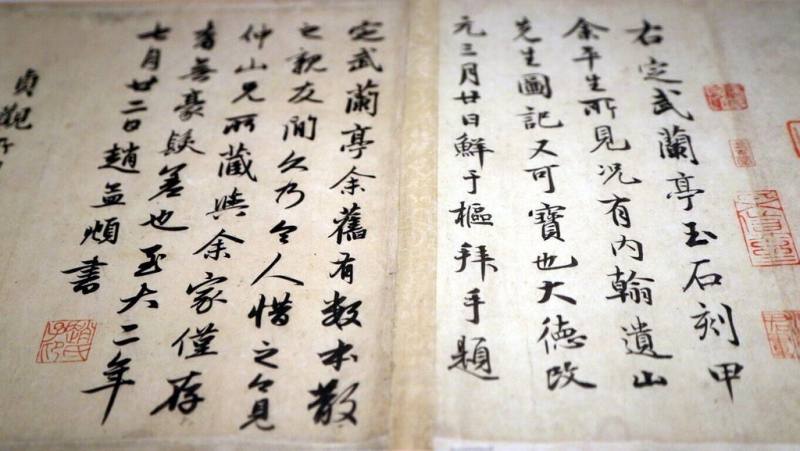 右定武蘭亭玉石刻甲
余平生所見况有内翰遺山
先生圖記又可寶也大德改
元三月廿日鮮于樞拜手題
定武蘭亭余舊有数本散
之親友間久乃令人惜之今見
仲山兄所藏與余家僅存
者無豪髮差也至大二年
七月廿二日趙孟頫書
趙氏子昂
貞觀